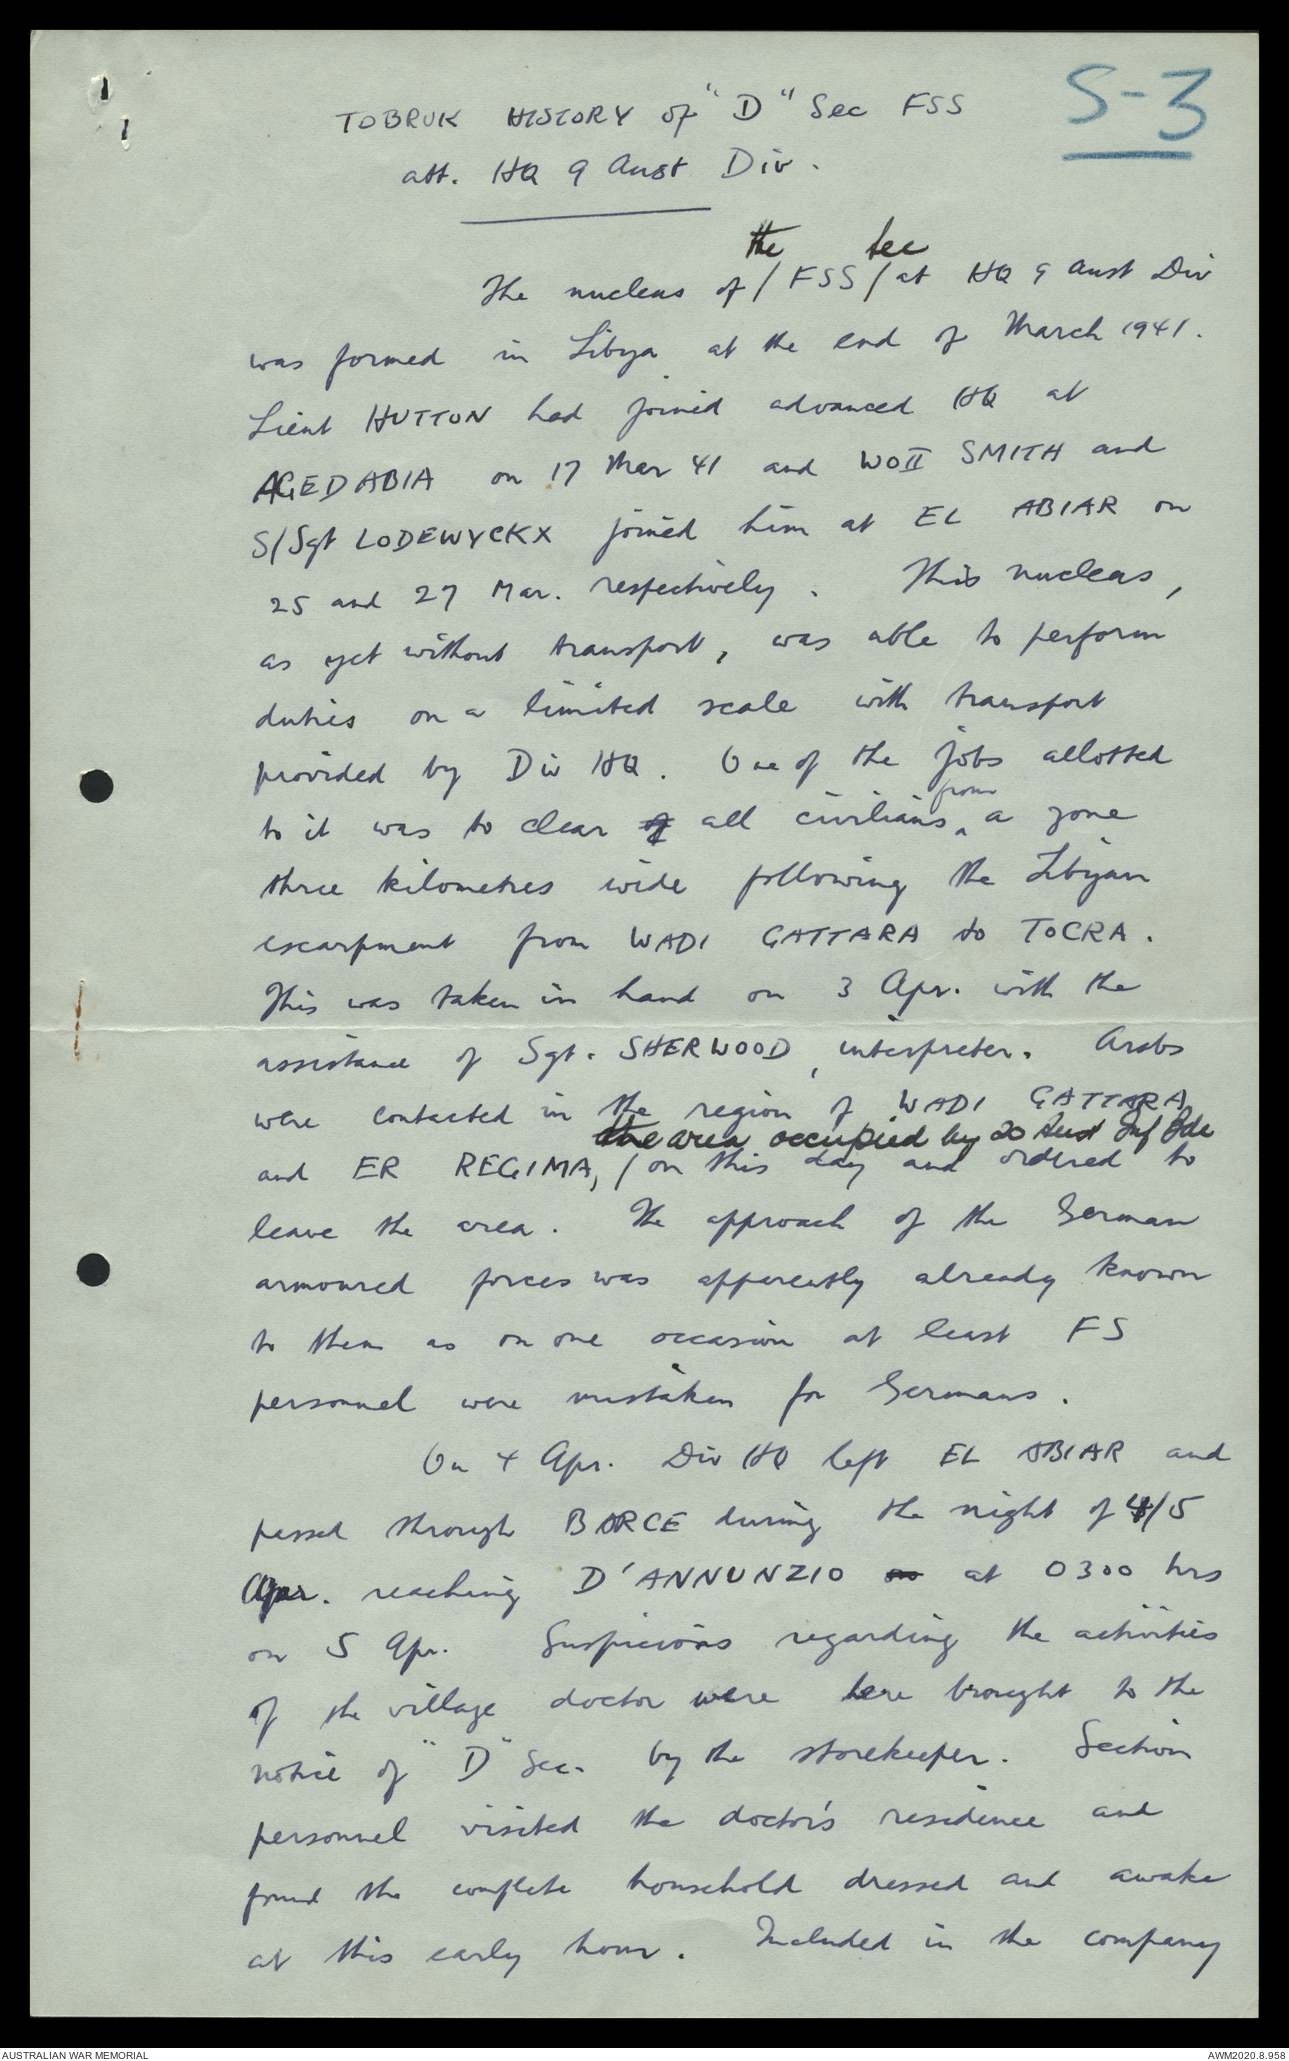 S-3
TOBRUK HISTORY of "D" Sec FSS
att. HQ 9 Aust Div.
the sec
The nucleus of / FSS / at HQ 9 Aust Div
was formed in Libya at the end of March 1941.
Lieut HUTTON had joined advanced HQ at
AGEDABIA on 17 Mar 41 and WOII SMITH and
S/Sgt LODEWYCKX joined him at EL ABIAR on
25 and 27 Mar. respectively. This nucleus,
as yet without transport, was able to perform
duties on a limited scale with transport
provided by Div HQ. One of the jobs allotted
from
to it was to clear of all civilians ^ a zone
three kilometres wide following the Libyan
escarpment from WADI GATTARA to TOCRA.
This was taken in hand on 3 Apr. with the
assistance of Sgt. SHERWOOD, interpreter. Arabs
were contacted in the region of WADI GATTARA
the area occupied by 20 Aust Inf Bde
and ER REGIMA, / on this day and ordered to
leave the area. The approach of the German
armoured forces was apparently already known
to them as on one occasion at least FS
personnel were mistaken for Germans.
On 4 Apr. Div HQ left EL ABIAR and
passed through BARCE during the night of 4/5
Apr. reaching D'ANNUNZIO on at 0300 hrs
on 5 Apr. Suspicions regarding the activities
of the village doctor were here brought to the
notice of "D" Sec. by the storekeeper. Section
personnel visited the doctor's residence and
found the complete household dressed and awake
at this early hour. Included in the company
AUSTRALIAN WAR MEMORIAL
AWM2020.8.958